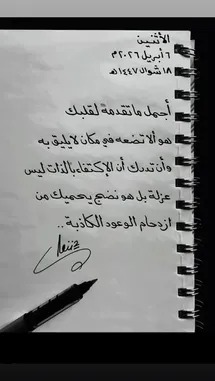 الأثنين
٦ أبريل ٢٠٢٦م
١٨ شوال ١٤٤٧هـ
أجمل ما تقدمة لقلبك
هو ألا تضعه في مكان لا يليق به
وأن تدرك أن الإكتفاء بالذات ليس
عزلة بل هو نضج يحميك من
ازدحام الوعود الكاذبة ..